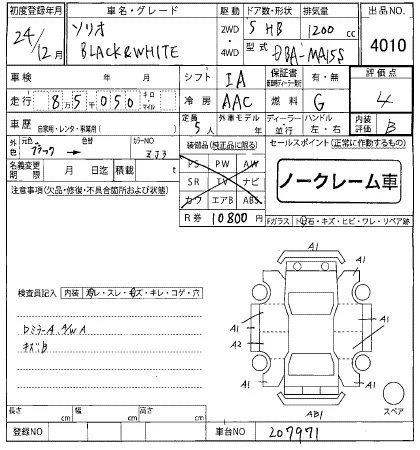 初度登録年月 車名・グレード 駆動 ドア数・形状 排気量 出品NO
24/12月 ソリオ BLACK&WHITE 2WD・4WD 5 HB 1200 cc 4010
型式 DBA-MA15S
車検 年 月 シフト IA 保証書 有・無 評価点
走行 8万5千050 キロ マイル 冷房 AAC 燃料 G 4
車歴 自家用・レンタ・事業用( ) 定員 5人 外車モデル 年 ディーラー・並行 ハンドル 左・右 内装評価 B
外色 元色 ブラック 色替 カラーNO ZJ3 装備品(純正品に限る) セールスポイント(正常に作動するもの)
名義変更期限 月 日迄 積載 t PS PW AW
SR TV ナビ
カワ エアB ABS
ノークレーム車
注意事項(欠品・修復・不具合箇所および状態) R券 10800円 Fガラス トビ石・キズ・ヒビ・ワレ・リペア跡
A1
検査員記入 内装 汚レ・スレ・キズ・キレ・コゲ・穴
A1 A1
A2
A1 A1
ロミラーA, A/W A
キズB
AB1 スペア
長さ cm 幅 cm 高さ cm
登録NO 車台NO 207971